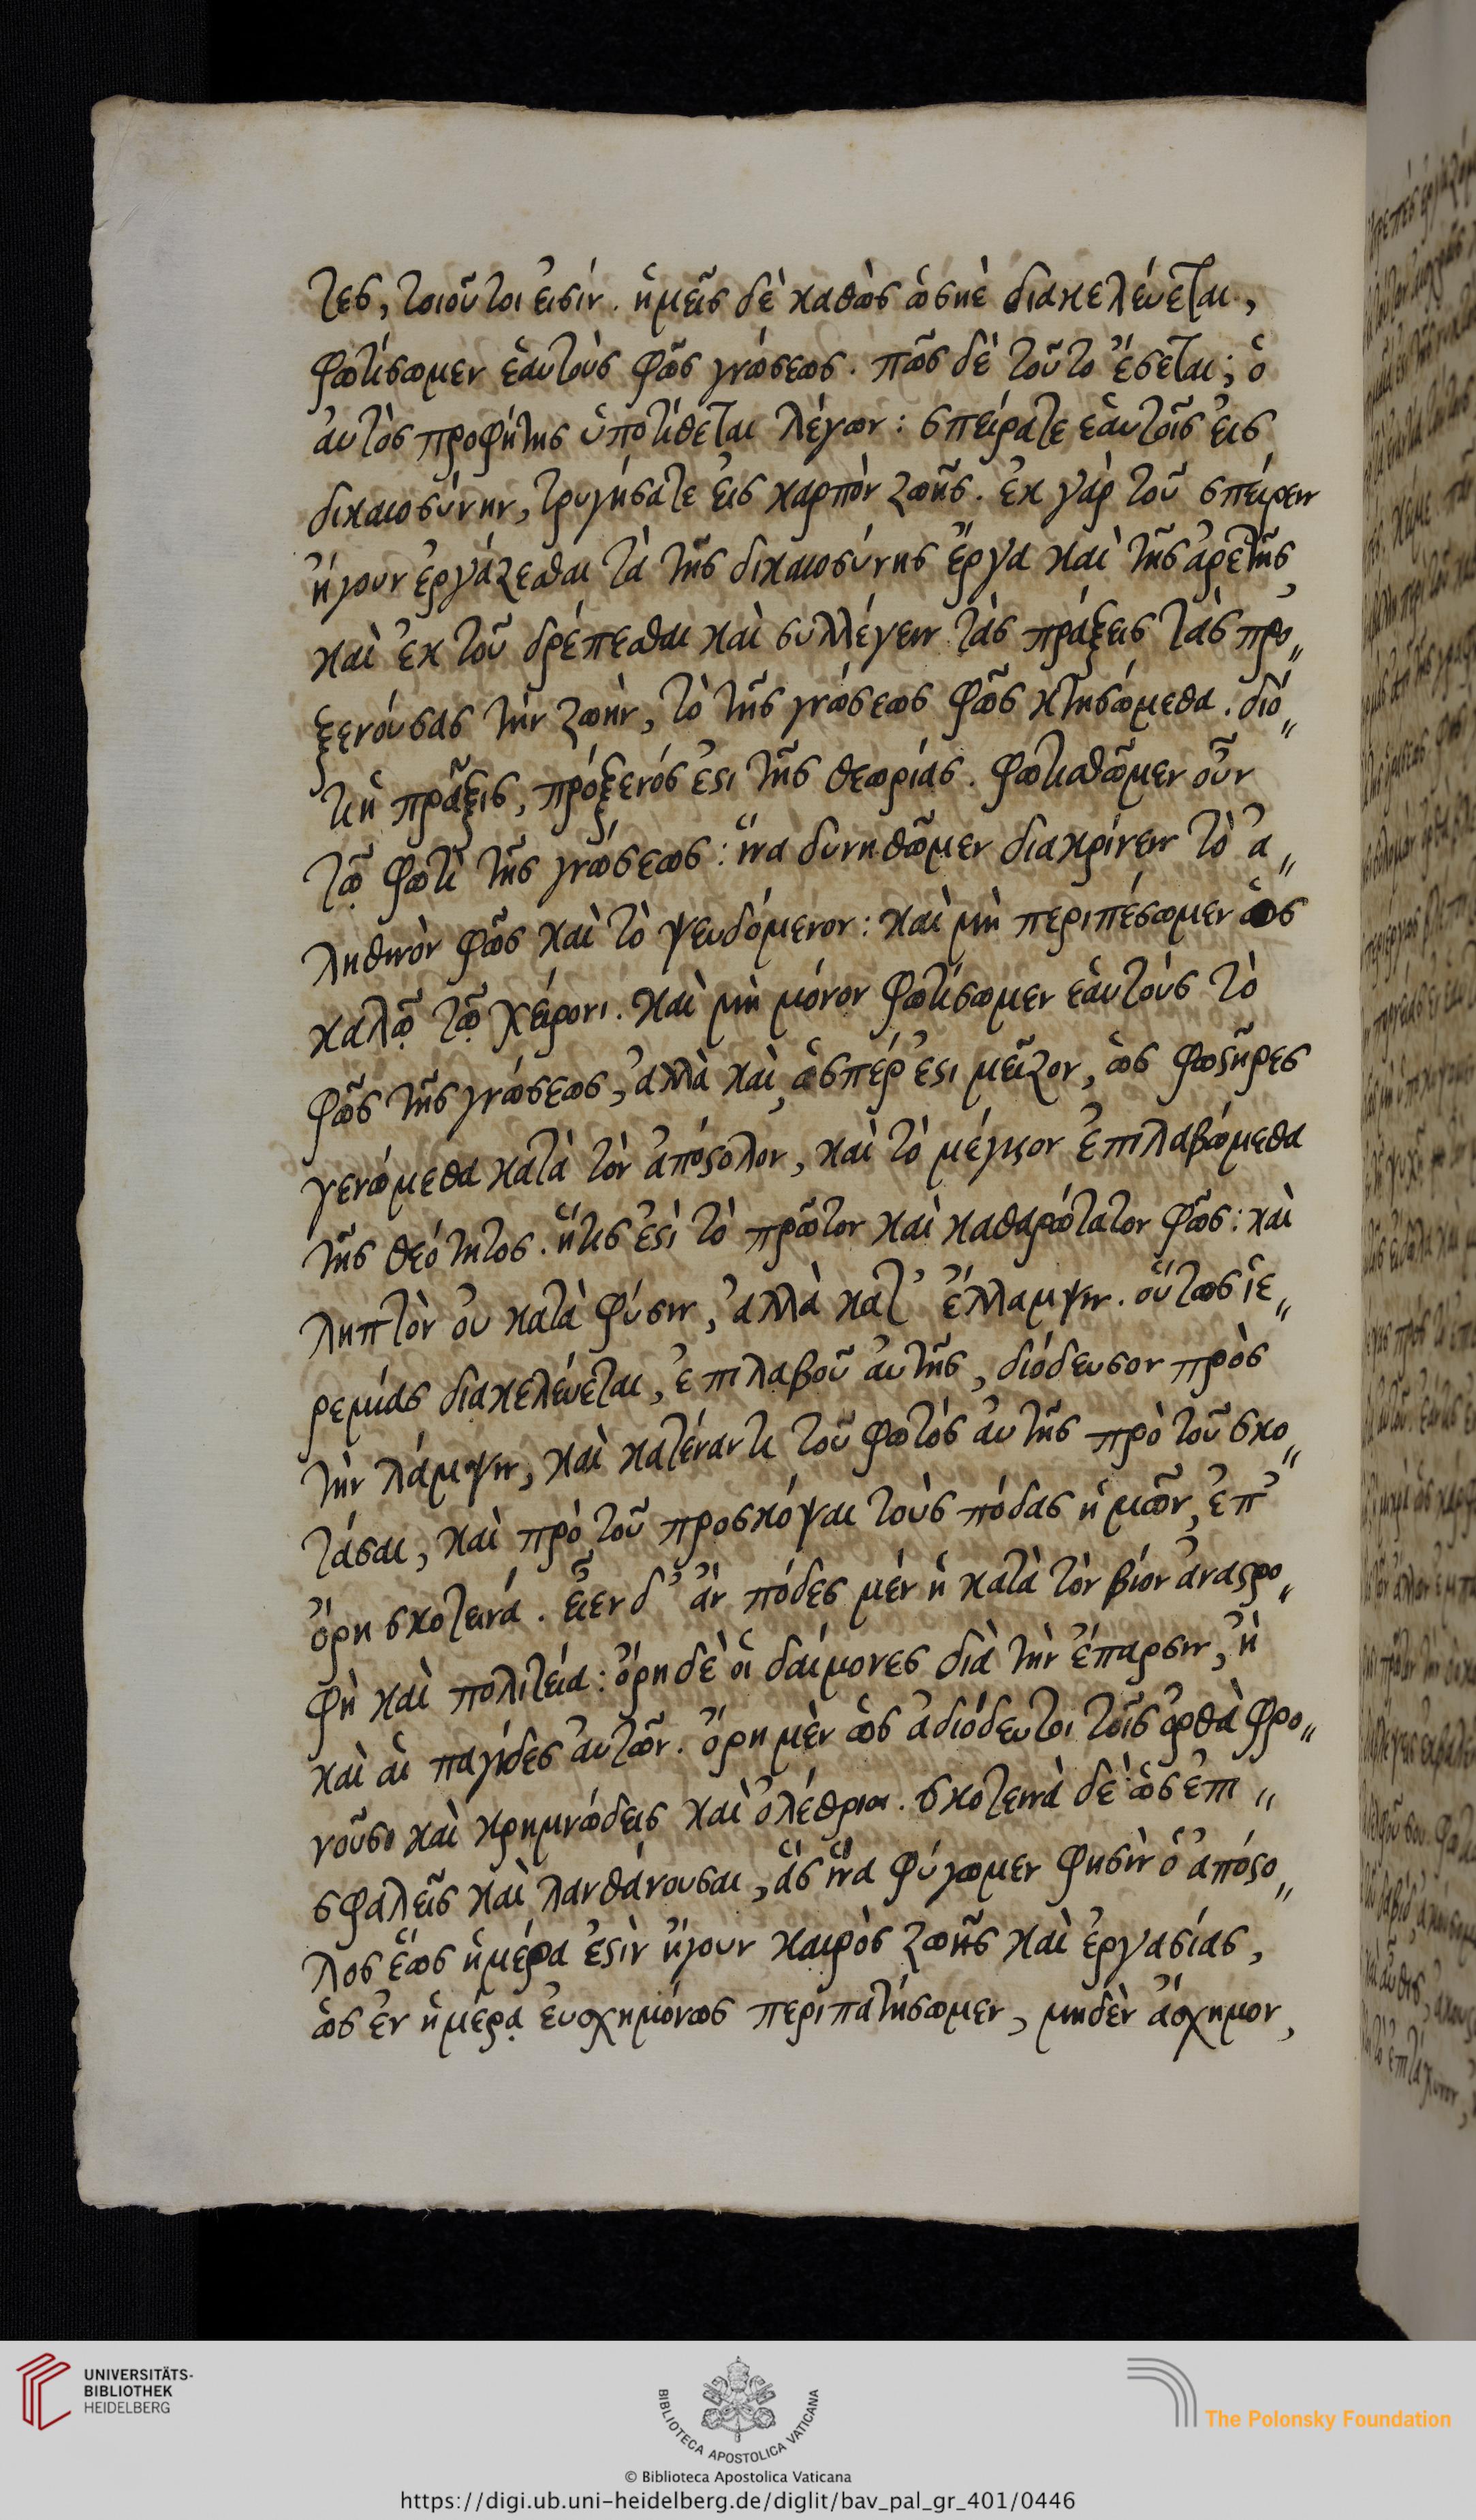 τες, τοιοῦτοι εἰσίν. ἡμεῖς δὲ καθὼς ὡσηὲ διακελέυεται,
φωτίσωμεν ἑαυτοὺς φῶς γνώσεως. πῶς δὲ τοῦτο ἔσεται; ὁ
αὐτὸς προφήτης ὑποτίθεται λέγων: σπείρατε ἑαυτοῖς εἰς
δικαιοσύνην, τρυγήσατε εἰς καρπὸν ζωῆς. ἐκ γὰρ τοῦ σπείρειν
ἤγουν ἐργάζεσθαι τὰ τῆς δικαιοσύνης ἔργα καὶ τῆς ἀρετῆς,
καὶ ἐκ τοῦ δρέπεσθαι καὶ συλλέγειν τὰς πράξεις τὰς προ„
ξενόυσας τὴν ζωὴν, τὸ τῆς γνώσεως φῶς κτησώμεθα. διό„
τι ἡ πρᾶξις, πρόξενός ἐστι τῆς θεωρίας. φωτισθῶμεν οὖν
τῷ φωτὶ τῆς γνώσεως: ἵνα δυνηθῶμεν διακρίνειν τὸ ἀ„
ληθινὸν φῶς καὶ τὸ ψευδόμενον: καὶ μὴ περιπέσωμεν ὡς
καλῷ τῷ χείρονι. καὶ μὴ μόνον φωτίσωμεν ἑαυτοὺς τὸ
φῶς τῆς γνώσεως, ἀλλὰ καὶ, ὥσπέρ ἐστι μεῖζον, ὡς φωστῆρες
γενώμεθα κατὰ τὸν ἀπόστολον, καὶ τὸ μέγιστον ἐπιλαβώμεθα
τῆς θεότητος. ἥτις ἐστὶ τὸ πρῶτον καὶ καθαρώτατον φῶς: καὶ
ληπτὸν οὐ κατὰ φύσιν, ἀλλὰ κατ' ἔλλαμψιν. οὕτως ἱε„
ρεμίας διακελέυεται, ἐπιλαβοῦ αὐτῆς, διόδευσον πρὸς
τὴν λάμψιν, καὶ κατέναντι τοῦ φωτὸς αὐτῆς πρὸ τοῦ σκο„
τάσαι, καὶ πρὸ τοῦ προσκόψαι τοὺς πόδας ἡμῶν, ἐπ'
ὄρη σκοτεινά. εἶεν δ' ἂν πόδες μὲν ἡ κατὰ τὸν βίον ἀναστρο„
φὴ καὶ πολιτεία: ὄρη δὲ οἱ δαίμονες διὰ τὴν ἔπαρσιν, ἢ
καὶ αἱ παγίδες αὐτῶν. ὄρη μὲν ὡς ἀδιόδευτοι τοῖς ὀρθὰ φρο„
νοῦσι καὶ κρημνώδεις καὶ ὀλέθριαι. σκοτεινὰ δὲ ὡς ἐπι„
σφαλεῖς καὶ λανθάνουσαι, ἃς ἵνα φύγωμεν φησὶν ὁ ἀπόστο„
λος ἕως ἡμέρα ἐστὶν ἤγουν καιρὸς ζωῆς καὶ ἐργασίας,
ὡς ἐν ἡμέρᾳ εὐσχημόνως περιπατήσωμεν, μηδὲν ἄσχημον,
UNIVERSITÄTS-
BIBLIOTHEK
HEIDELBERG
BIBLIOTECA APOSTOLICA VATICANA
© Biblioteca Apostolica Vaticana
The Polonsky Foundation
https://digi.ub.uni-heidelberg.de/diglit/bav_pal_gr_401/0446